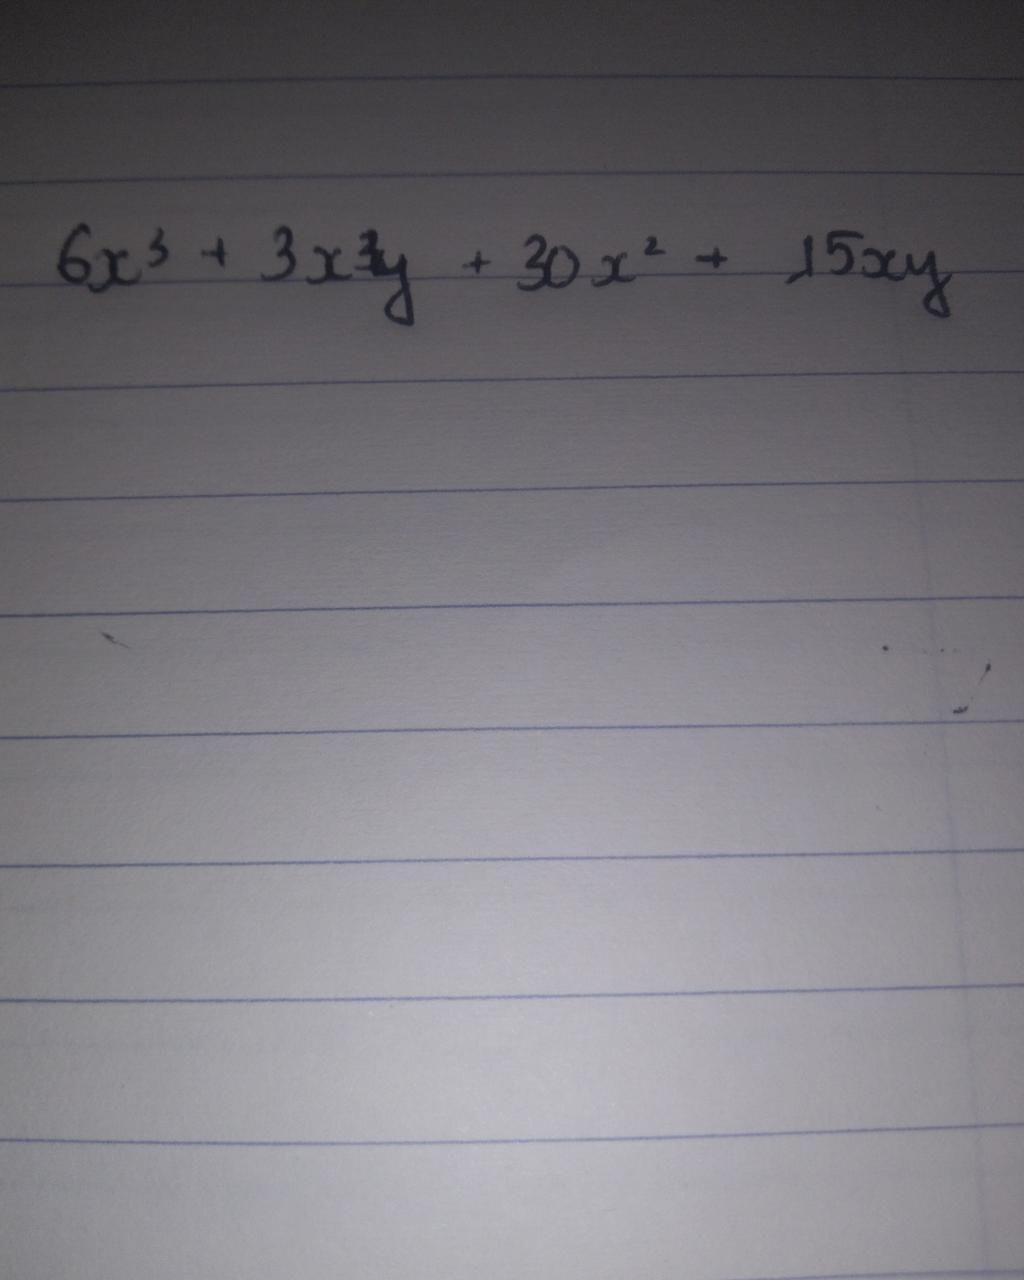 6x³ + 3x²y + 30x² + 15xy